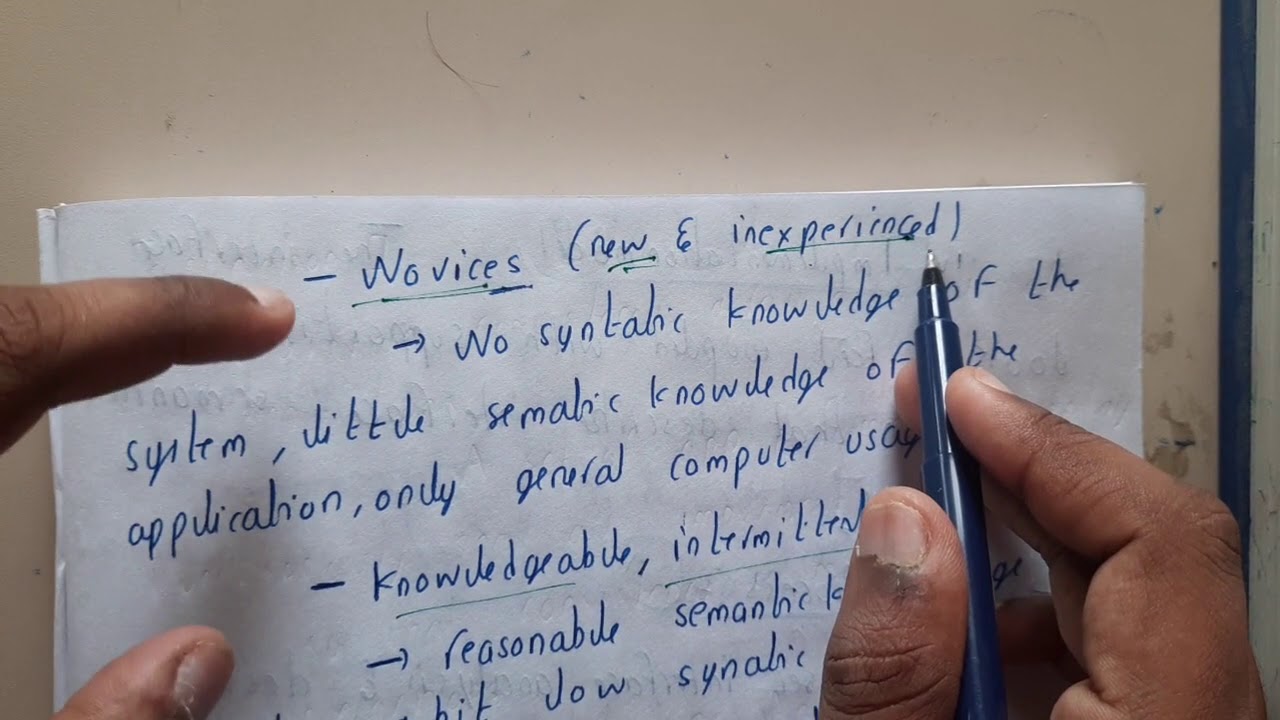 - Novices (new & inexperienced)
→ No syntatic knowledge of the
system, little sematic knowledge of the
application, only general computer usag
- knowledgeable, intermitten
→ reasonable semantic k
bit low synatic